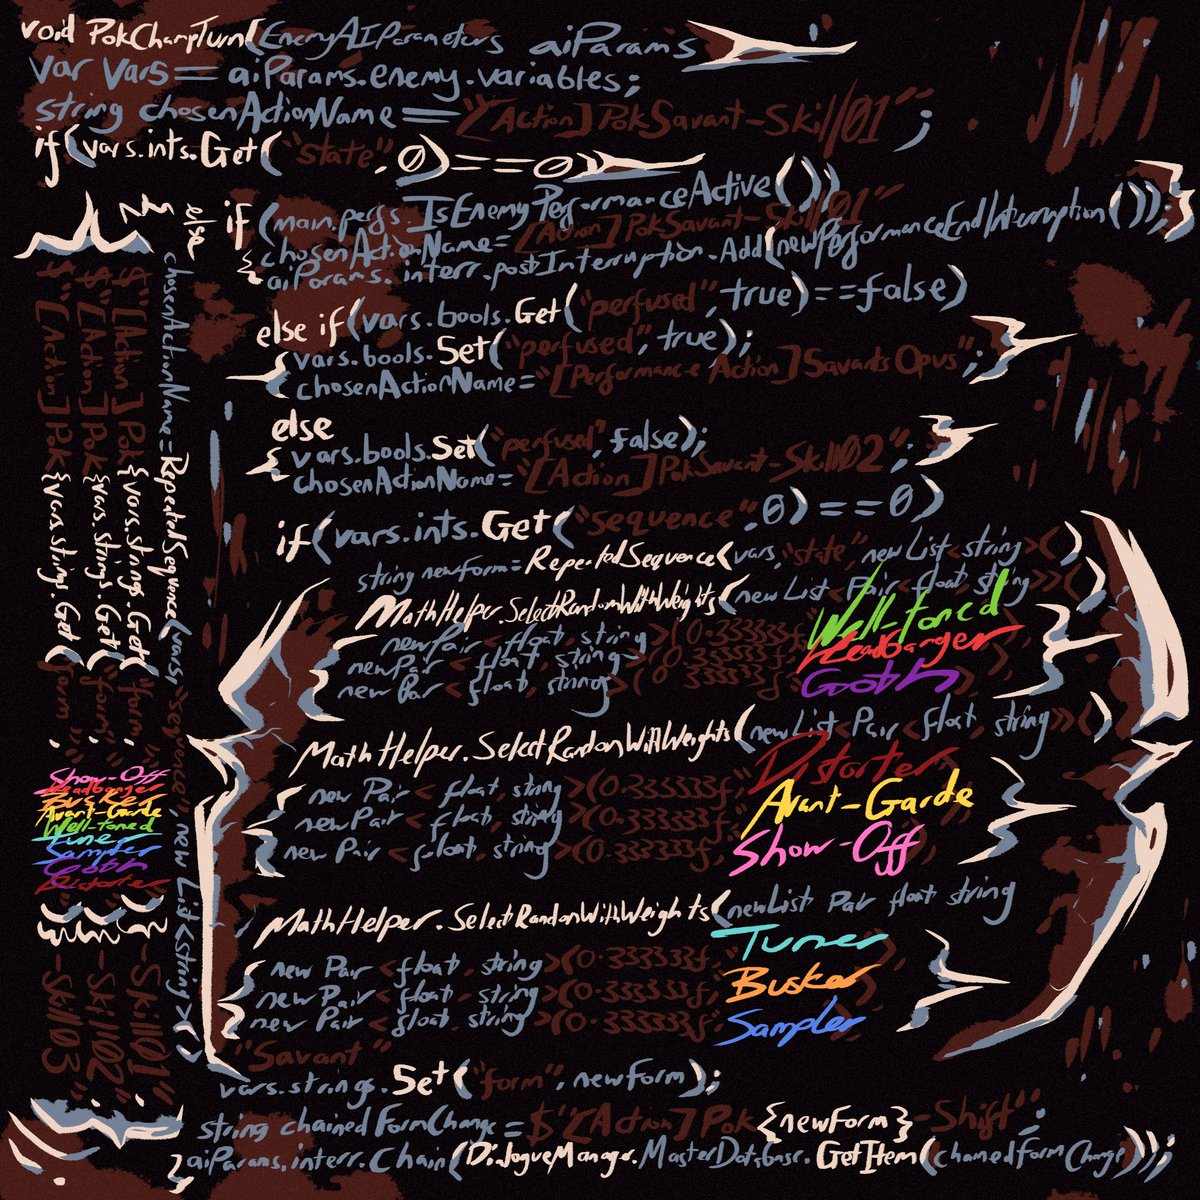 void PokChampTurn(EnemyAIParameters aiParams
var vars = aiParams.enemy.variables;
string chosenActionName = "[Action]PokSavant-Skill01";
if(vars.ints.Get("state",0)==0)
if(main.perfs.IsEnemyPerformanceActive())
chosenActionName="[Action]PokSavant-Skill01"
aiParams.interr.postInterruption.Add(newPerformanceEndInterruption());}
else if(vars.bools.Get("perfused",true)==false)
{vars.bools.Set("perfused",true);
chosenActionName="[Performance Action]SavantsOpus";}
else
{vars.bools.Set("perfused",false);
chosenActionName="[Action]PokSavant-Skill02";}
if(vars.ints.Get("sequence",0)==0)
{string newform=RepeatedSequence(vars,"state",new List<string>()
{MathHelper.SelectRandomWithWeights(newList<Pair<float,string>>()
{newPair<float,string>(0.33333f,Well-toned
newPair<float,string>(0.33333f,Headbanger
new Pair<float,string>(0.33333f,Goth
}
MathHelper.SelectRandonWithWeights(newList<Pair<float,string>>()
{new Pair<float,string>(0.33333f,Distorter
newPair<float,string>(0.33333f,Avant-Garde
new Pair<float,string>(0.33333f,Show-Off
}
MathHelper.SelectRandonWithWeights(newList Pair float string
{new Pair<float,string>(0.33333f,Tuner
new Pair<float,string>(0.33333f,Busker
new Pair<float,string>(0.33333f,Sampler
}
"Savant"
vars.strings.Set("form",newform);
string chainedFormChange=$"[Action]Pok{newform}-Shift";
aiParams.interr.Chain(DialogueManager.MasterDatabase.GetItem(chainedFormChange));}
else
{chosenActionName=RepeatedSequence(vars,"sequence",new List<string>()
{$"[Action]Pok{vars.strings.Get("form",
}-Skill01"
$"[Action]Pok{vars.strings.Get("form",
}-Skill02"
$"[Action]Pok{vars.strings.Get("form",
}-Skill03"
Show-Off
Headbanger
Busker
Avant-Garde
Well-toned
Tuner
Sampler
Goth
Distorter